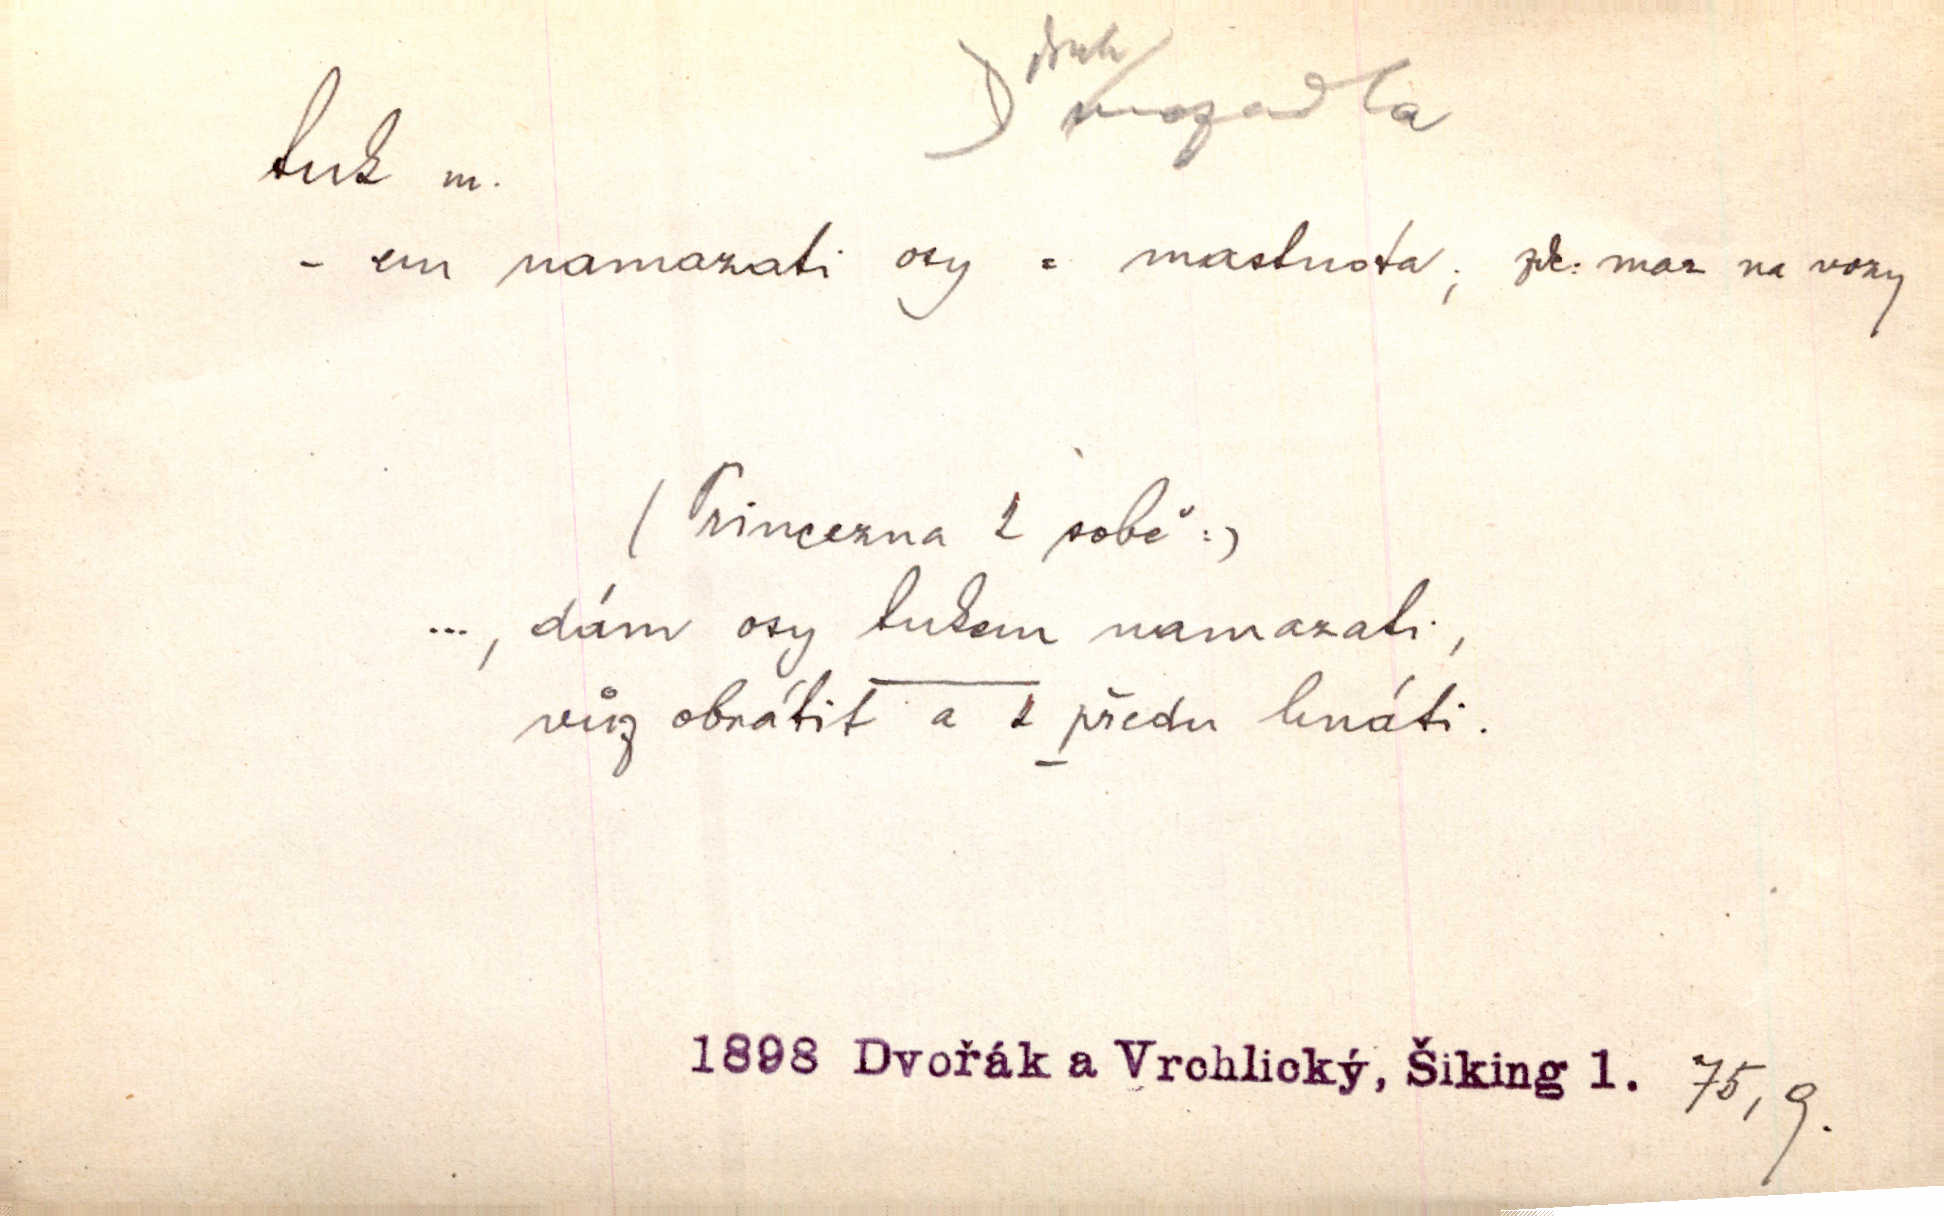 druh
mazadla
tuk m.
- em namazati osy = mastnota; zde: maz na vozy
(Princezna k sobě:)
..., dám osy tukem namazati,
vůz obrátit a k předu hnáti.
1898 Dvořák a Vrchlický, Šiking 1. 75, 9.